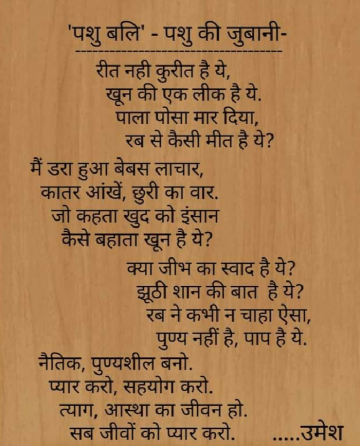 'पशु बलि' - पशु की जुबानी-
रीत नही कुरीत है ये,
खून की एक लीक है ये.
पाला पोसा मार दिया,
रब से कैसी मीत है ये?
मैं डरा हुआ बेबस लाचार,
कातर आंखें, छुरी का वार.
जो कहता खुद को इंसान
कैसे बहाता खून है ये?
क्या जीभ का स्वाद है ये?
झूठी शान की बात है ये?
रब ने कभी न चाहा ऐसा,
पुण्य नहीं है, पाप है ये.
नैतिक, पुण्यशील बनो.
प्यार करो, सहयोग करो.
त्याग, आस्था का जीवन हो.
सब जीवों को प्यार करो. .....उमेश